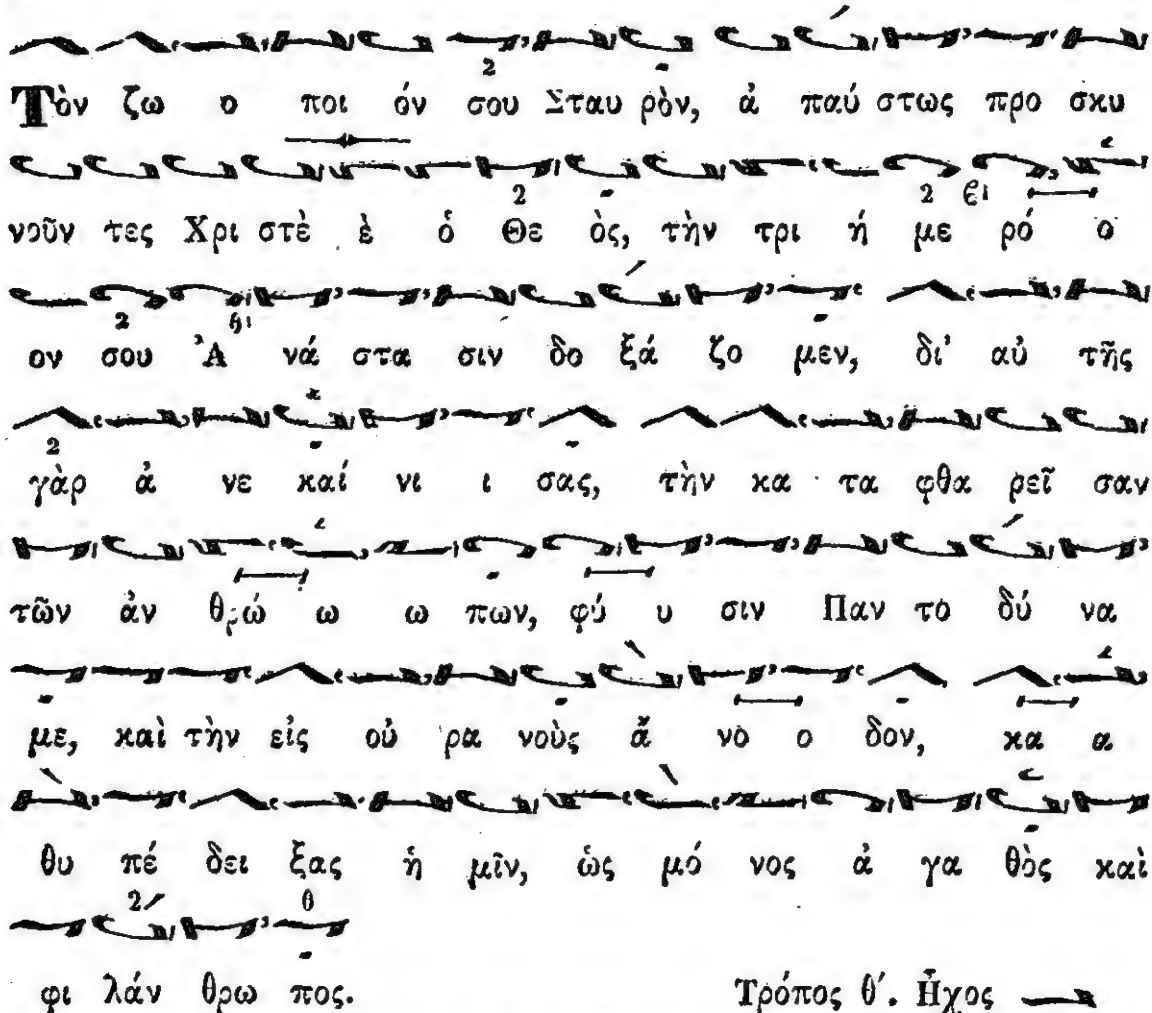 Τὸν ζω ο ποι όν σου Σταυ ρὸν, ἀ παύ στως προ σκυ
νοῦν τες Χρι στὲ ὲ ὁ Θε ὸς, τὴν τρι ή με ρό ο
ον σου Ἀ νά στα σιν δο ξά ζο μεν, δι' αὐ τῆς
γὰρ ἀ νε καί νι ι σας, τὴν κα τα φθα ρεῖ σαν
τῶν ἀν θρώ ω ω πων, φύ υ σιν Παν το δύ να
με, καὶ τὴν εἰς οὐ ρα νοὺς ἄ νο ο δον, κα α
θυ πέ δει ξας ἡ μῖν, ὡς μό νος ἀ γα θὸς καὶ
φι λάν θρω πος.
Τρόπος θ΄. Ἦχος